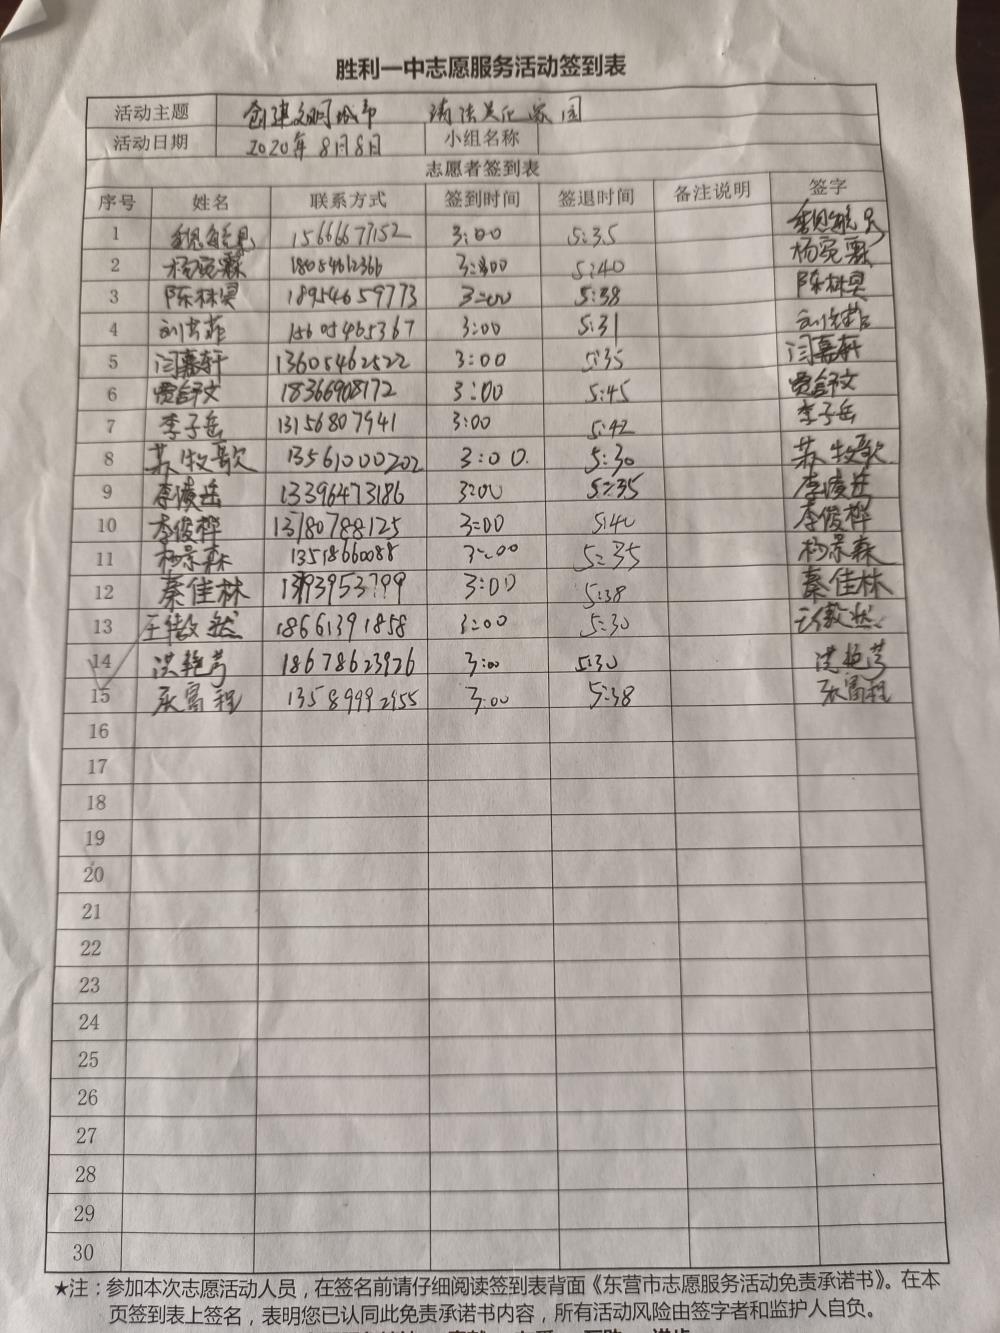 胜利一中志愿服务活动签到表
活动主题 创建文明城市 清洁美化家园
活动日期 2020年8月8日 小组名称
志愿者签到表
序号 姓名 联系方式 签到时间 签退时间 备注说明 签字
1 15666677152 3:00 5:35
2 杨宛霖 18054612366 3:00 5:40 杨宛霖
3 陈林昊 18954659773 3:00 5:38 陈林昊
4 15605465367 3:00 5:31
5 闫嘉轩 13605462822 3:00 5:35 闫嘉轩
6 贾舒文 18366908172 3:00 5:45 贾舒文
7 李子岳 13156807941 3:00 5:42 李子岳
8 苏牧歌 13561000202 3:00 5:30 苏牧歌
9 李凌岳 13396473186 3:00 5:35 李凌岳
10 李俊桦 13780788125 3:00 5:40 李俊桦
11 杨景森 13518660088 3:00 5:35 杨景森
12 秦佳林 3:00 5:38 秦佳林
13 王傲然 18661391858 3:00 5:30 王傲然
14 洪艳芎 18678623926 3:00 5:30 洪艳芎
15 张富程 13589992955 3:00 5:38 张富程
16
17
18
19
20
21
22
23
24
25
26
27
28
29
30
★注：参加本次志愿活动人员，在签名前请仔细阅读签到表背面《东营市志愿服务活动免责承诺书》。在本
页签到表上签名，表明您已认同此免责承诺书内容，所有活动风险由签字者和监护人自负。